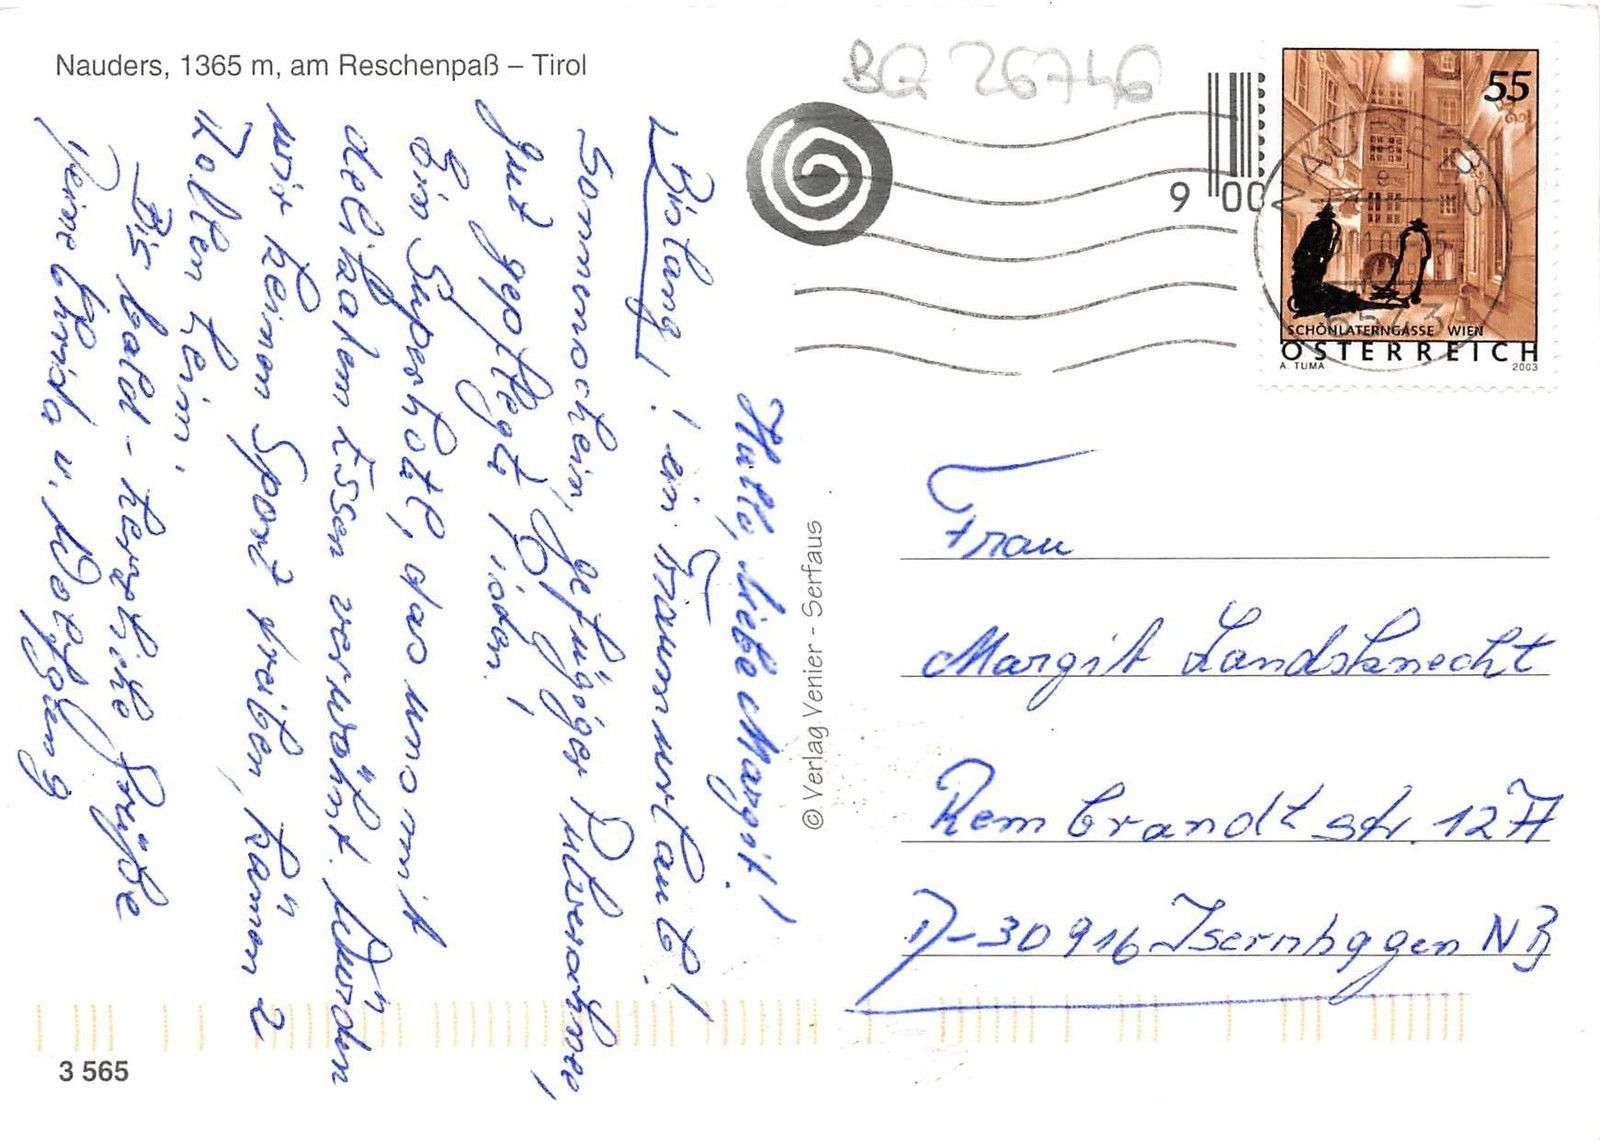 Nauders, 1365 m, am Reschenpaß – Tirol
BQ 26746
55
9 00
NAUDERS
6573
SCHÖNLATERNGASSE WIEN
ÖSTERREICH
A. TUMA 2003
Hallo, liebe Margit!
Bislang! ein Traumurlaub!
Sonnenschein, gefügiger Pulverschnee,
gut gepflegt Pisten!
Ein Superhotel, das uns mit
delikatem Essen verwöhnt. Würden
wir keinen Sport treiben, kämen 2
Rollen heim!
Bis bald - herzliche Grüße
Deine Christa u. Wolfgang
© Verlag Venier - Serfaus
Frau
Margit Landsknecht
Rembrandtstr. 12A
D-30916 Isernhagen NB
3 565